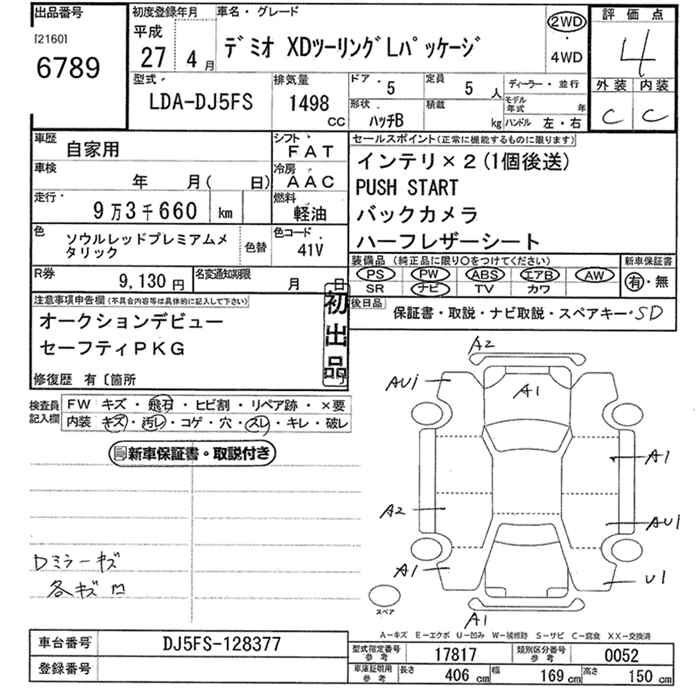 出品番号
[2160]
6789
初度登録年月
平成
27年 4月
車名・グレード
デミオ XDツーリングLパッケージ
2WD
・
4WD
評価点
4
外装 内装
C C
型式
LDA-DJ5FS
排気量
1498
CC
ドア
5
定員
5 人
ディーラー・並行
形状
ハッチB
積載
kg
モデル年式 年
ハンドル 左・右
車歴
自家用
シフト
FAT
車検
年 月( 日)
冷房
AAC
走行
9万3千660 km
燃料
軽油
色
ソウルレッドプレミアムメ
タリック
色替
色コード
41V
R券
9,130円
名変通知期限
月 日
セールスポイント(正常に機能するものに限ります)
インテリ×2(1個後送)
PUSH START
バックカメラ
ハーフレザーシート
装備品 (純正品に限り○をつけてください)
PS PW ABS エアB AW
SR ナビ TV カワ
新車保証書
有・無
後日品
保証書・取説・ナビ取説・スペアキー・SD
注意事項申告欄(不具合内容等は具体的に記入して下さい)
オークションデビュー
セーフティPKG
初出品
修復歴 有〔箇所 〕
検査員
記入欄
FW キズ・飛石・ヒビ割・リペア跡・×要
内装 キズ・汚レ・コゲ・穴・スレ・キレ・破レ
新車保証書・取説付き
Dミラーキズ
各キズ凹
A2
AUi
A1
A1
A2
AU1
A1
U1
A1
スペア
A―キズ E―エクボ U―凹み W―補修跡 S―サビ C―腐食 XX―交換済
車台番号
DJ5FS-128377
登録番号
型式指定番号
参考
17817
類別区分番号
参考
0052
車庫証明用
参考
長さ 406 cm
幅 169 cm
高さ 150 cm